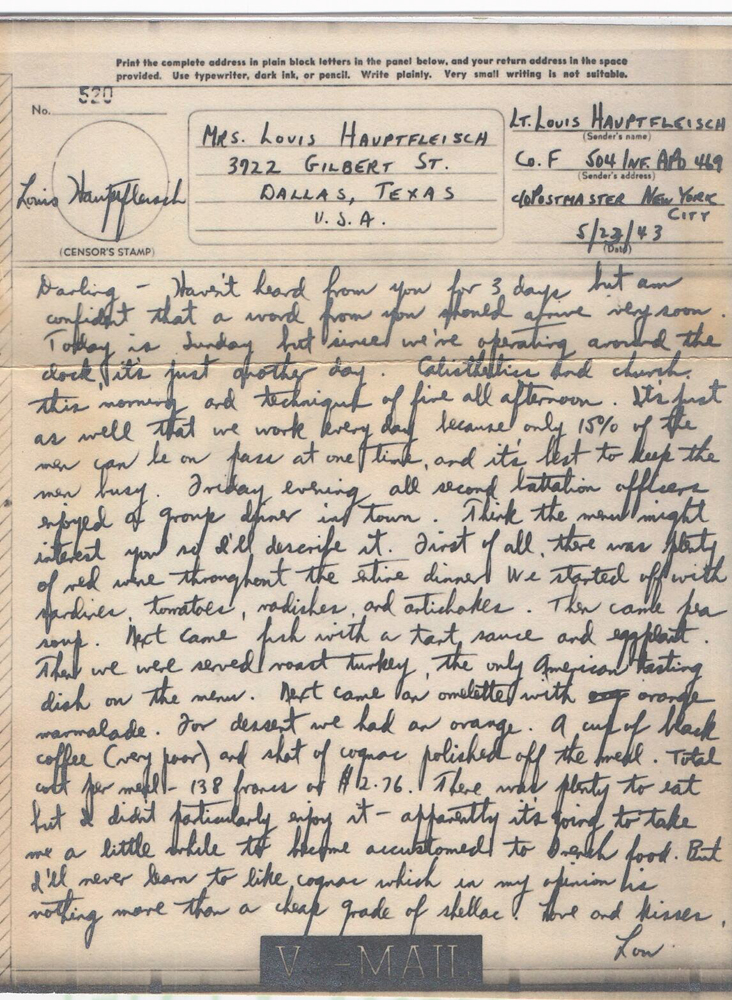 Print the complete address in plain block letters in the panel below, and your return address in the space
provided. Use typewriter, dark ink, or pencil. Write plainly. Very small writing is not suitable.
No. 520
Louis Hauptfleisch
(CENSOR'S STAMP)
MRS. LOUIS HAUPTFLEISCH
3722 GILBERT ST.
DALLAS, TEXAS
U.S.A.
LT. LOUIS HAUPTFLEISCH
(Sender's name)
CO. F 504 INF. APO 469
(Sender's address)
C/O POSTMASTER NEW YORK
CITY
5/23/43
(Date)
Darling - Haven't heard from you for 3 days but am
confident that a word from you should arrive very soon.
Today is Sunday but since we're operating around the
clock, it's just another day. Calisthetics and church
this morning and technique of fire all afternoon. It's just
as well that we work every day because only 15% of the
men can be on pass at one time, and it's best to keep the
men busy. Friday evening all second battalion officers
enjoyed a group dinner in town. Think the menu might
interest you so I'll describe it. First of all, there was plenty
of red wine throughout the entire dinner. We started off with
sardines, tomatoes, radishes, and artichokes. Then came pea
soup. Next came fish with a tart sauce and eggplant.
Then we were served roast turkey, the only American tasting
dish on the menu. Next came an omelette with orange
marmalade. For dessert we had an orange. A cup of black
coffee (very poor) and shot of cognac polished off the meal. Total
cost per meal - 138 francs or $2.76. There was plenty to eat
but I didn't particularly enjoy it - apparently it's going to take
me a little while to become accustomed to French food. But
I'll never learn to like cognac which in my opinion is
nothing more than a cheap grade of shellac. Love and kisses,
Lou
V···-MAIL